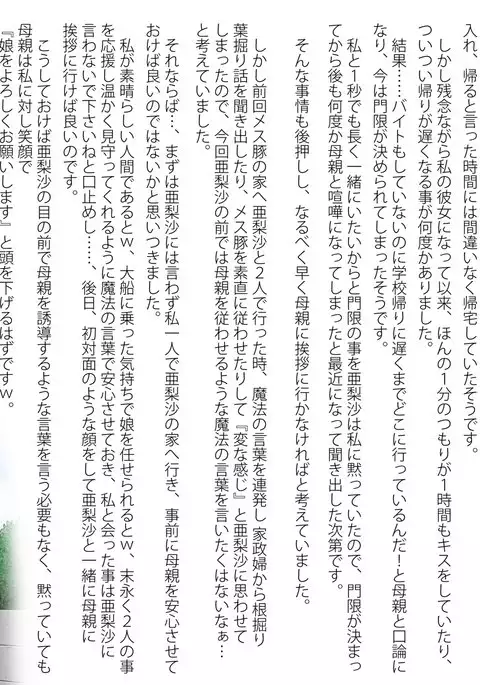 入れ、帰ると言った時間には間違いなく帰宅していたそうです。
しかし残念ながら私の彼女になって以来、ほんの１分のつもりが１時間もキスをしていたり、
ついつい帰りが遅くなる事が何度かありました。
結果……バイトもしていないのに学校帰りに遅くまでどこに行っているんだ！と母親と口論に
なり、今は門限が決められてしまったそうです。
私と１秒でも長く一緒にいたいからと門限の事を亜梨沙は私に黙っていたので、門限が決まっ
てから後も何度か母親と喧嘩になってしまったと最近になって聞き出した次第です。
そんな事情も後押しし、なるべく早く母親に挨拶に行かなければと考えていました。
しかし前回メス豚の家へ亜梨沙と２人で行った時、魔法の言葉を連発し家政婦から根掘り
葉掘り話を聞き出したり、メス豚を素直に従わせたりして『変な感じ』と亜梨沙に思わせて
しまったので、今回亜梨沙の前では母親を従わせるような魔法の言葉を言いたくはないなぁ…
と考えていました。
それならば…、まずは亜梨沙には言わず私一人で亜梨沙の家へ行き、事前に母親を安心させて
おけば良いのではないかと思いつきました。
私が素晴らしい人間であるとｗ、大船に乗った気持ちで娘を任せられるとｗ、末永く２人の事
を応援し温かく見守ってくれるように魔法の言葉で安心させておき、私と会った事は亜梨沙に
言わないで下さいねと口止めし……、後日、初対面のような顔をして亜梨沙と一緒に母親に
挨拶に行けば良いのです。
こうしておけば亜梨沙の目の前で母親を誘導するような言葉を言う必要もなく、黙っていても
母親は私に対し笑顔で
『娘をよろしくお願いします』と頭を下げるはずですｗ。